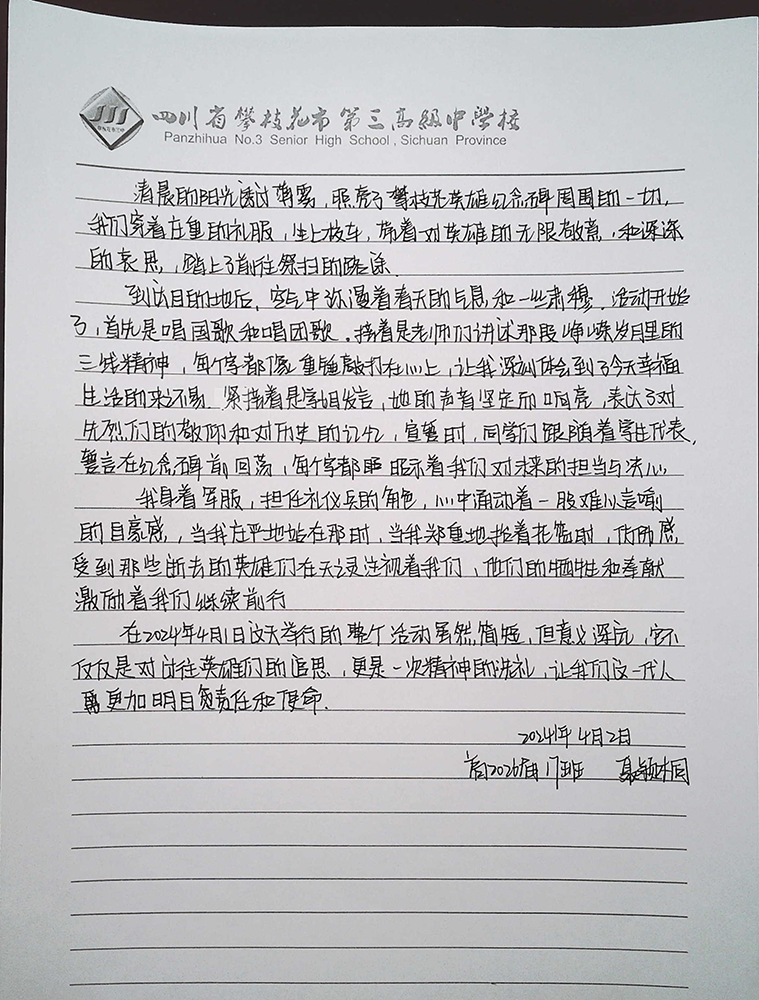 四川省攀枝花市第三高级中学校
Panzhihua No.3 Senior High School, Sichuan Province
清晨的阳光透过薄雾，照亮了攀枝花英雄纪念碑周围的一切，
我们穿着庄重的礼服，坐上校车，带着对英雄的无限敬意，和深深
的哀思，踏上了前往祭扫的路途.
到达目的地后，空气中弥漫着春天的气息和一丝肃穆。活动开始
了，首先是唱国歌和唱团歌。接着是老师们讲述那段峥嵘岁月里的
三线精神，每个字都像重锤敲打在心上，让我深刻体会到了今天幸福
生活的来之不易。紧接着是学姐发言，她的声音坚定而响亮，表达了对
先烈们的敬仰和对历史的记忆，宣誓时，同学们跟随着学生代表，
誓言在纪念碑前回荡，每个字都昭示着我们对未来的担当与决心。
我身着军服，担任礼仪兵的角色，心中涌动着一股难以言喻
的自豪感，当我庄严地站在那时，当我郑重地抬着花篮时，仿佛感
受到那些逝去的英雄们在天灵注视着我们，他们的牺牲和奉献
激励着我们继续前行
在2024年4月1日这天举行的整个活动虽然简短，但意义深远，它不
仅仅是对过往英雄们的追思，更是一次精神的洗礼，让我们这一代人
更加明白责任和使命.
2024年4月2日
高2026届17班 聂颖桐